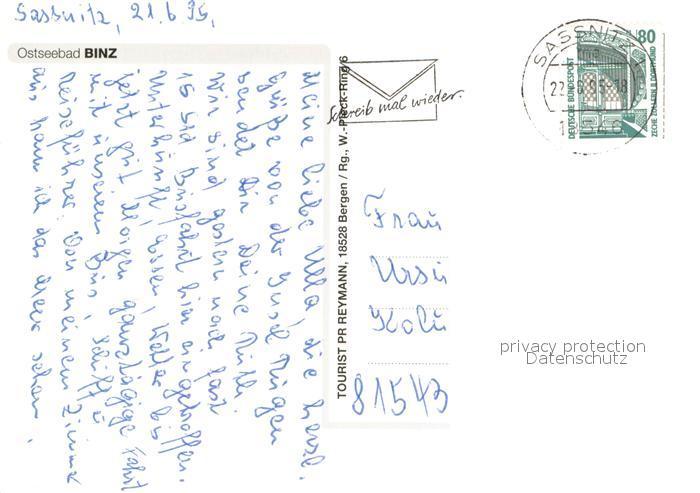 Sassnitz, 21.6.95,
Ostseebad BINZ
Meine liebe Ulla, die herzl.
Grüße von der Insel Rügen
sendet Dir Deine Ruth.
Wir sind gestern nach fast
15 Std Busfahrt hier eingetroffen.
Unterkunft, Essen, Wetter bis
jetzt gut. Morgen ganztägige Fahrt
mit unserem Bus, Schiff u.
Reiseführer. Von meinem Zimmer
aus kann ich das Meer sehen.
TOURIST PR REYMANN, 18528 Bergen / Rg., W.-Pieck-Ring 6
Schreib mal wieder.
SASSNITZ
18546
80
DEUTSCHE BUNDESPOST
ZECHE ZOLLERN II DORTMUND
Frau
81543
privacy protection
Datenschutz